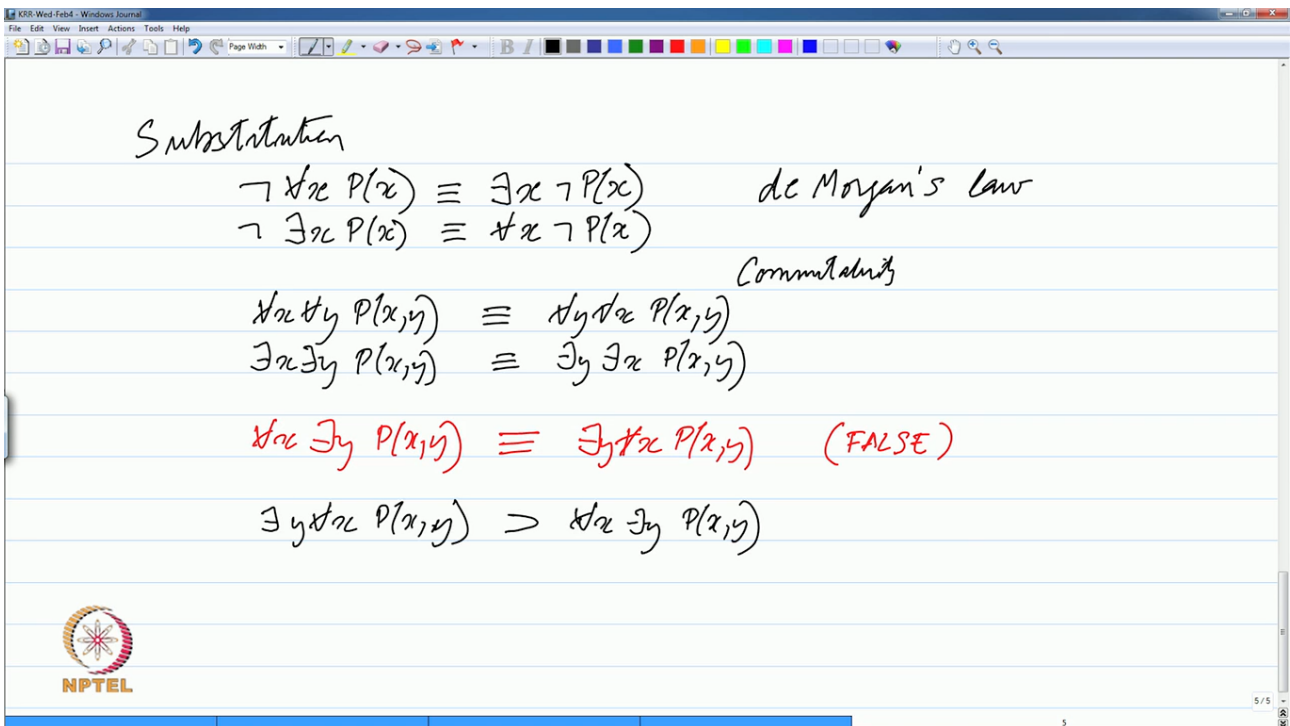 KRR-Wed-Feb4 - Windows Journal
File Edit View Insert Actions Tools Help
Page Width
Substitution
¬ ∀x P(x) ≡ ∃x ¬ P(x) de Morgan's law
¬ ∃x P(x) ≡ ∀x ¬ P(x)
Commutativity
∀x ∀y P(x,y) ≡ ∀y ∀x P(x,y)
∃x ∃y P(x,y) ≡ ∃y ∃x P(x,y)
∀x ∃y P(x,y) ≡ ∃y ∀x P(x,y) (FALSE)
∃y ∀x P(x,y) ⊃ ∀x ∃y P(x,y)
NPTEL
5/5
5